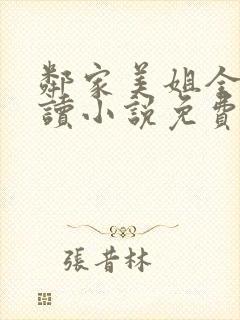 鄰家美姐全
讀小說免費
張昔林